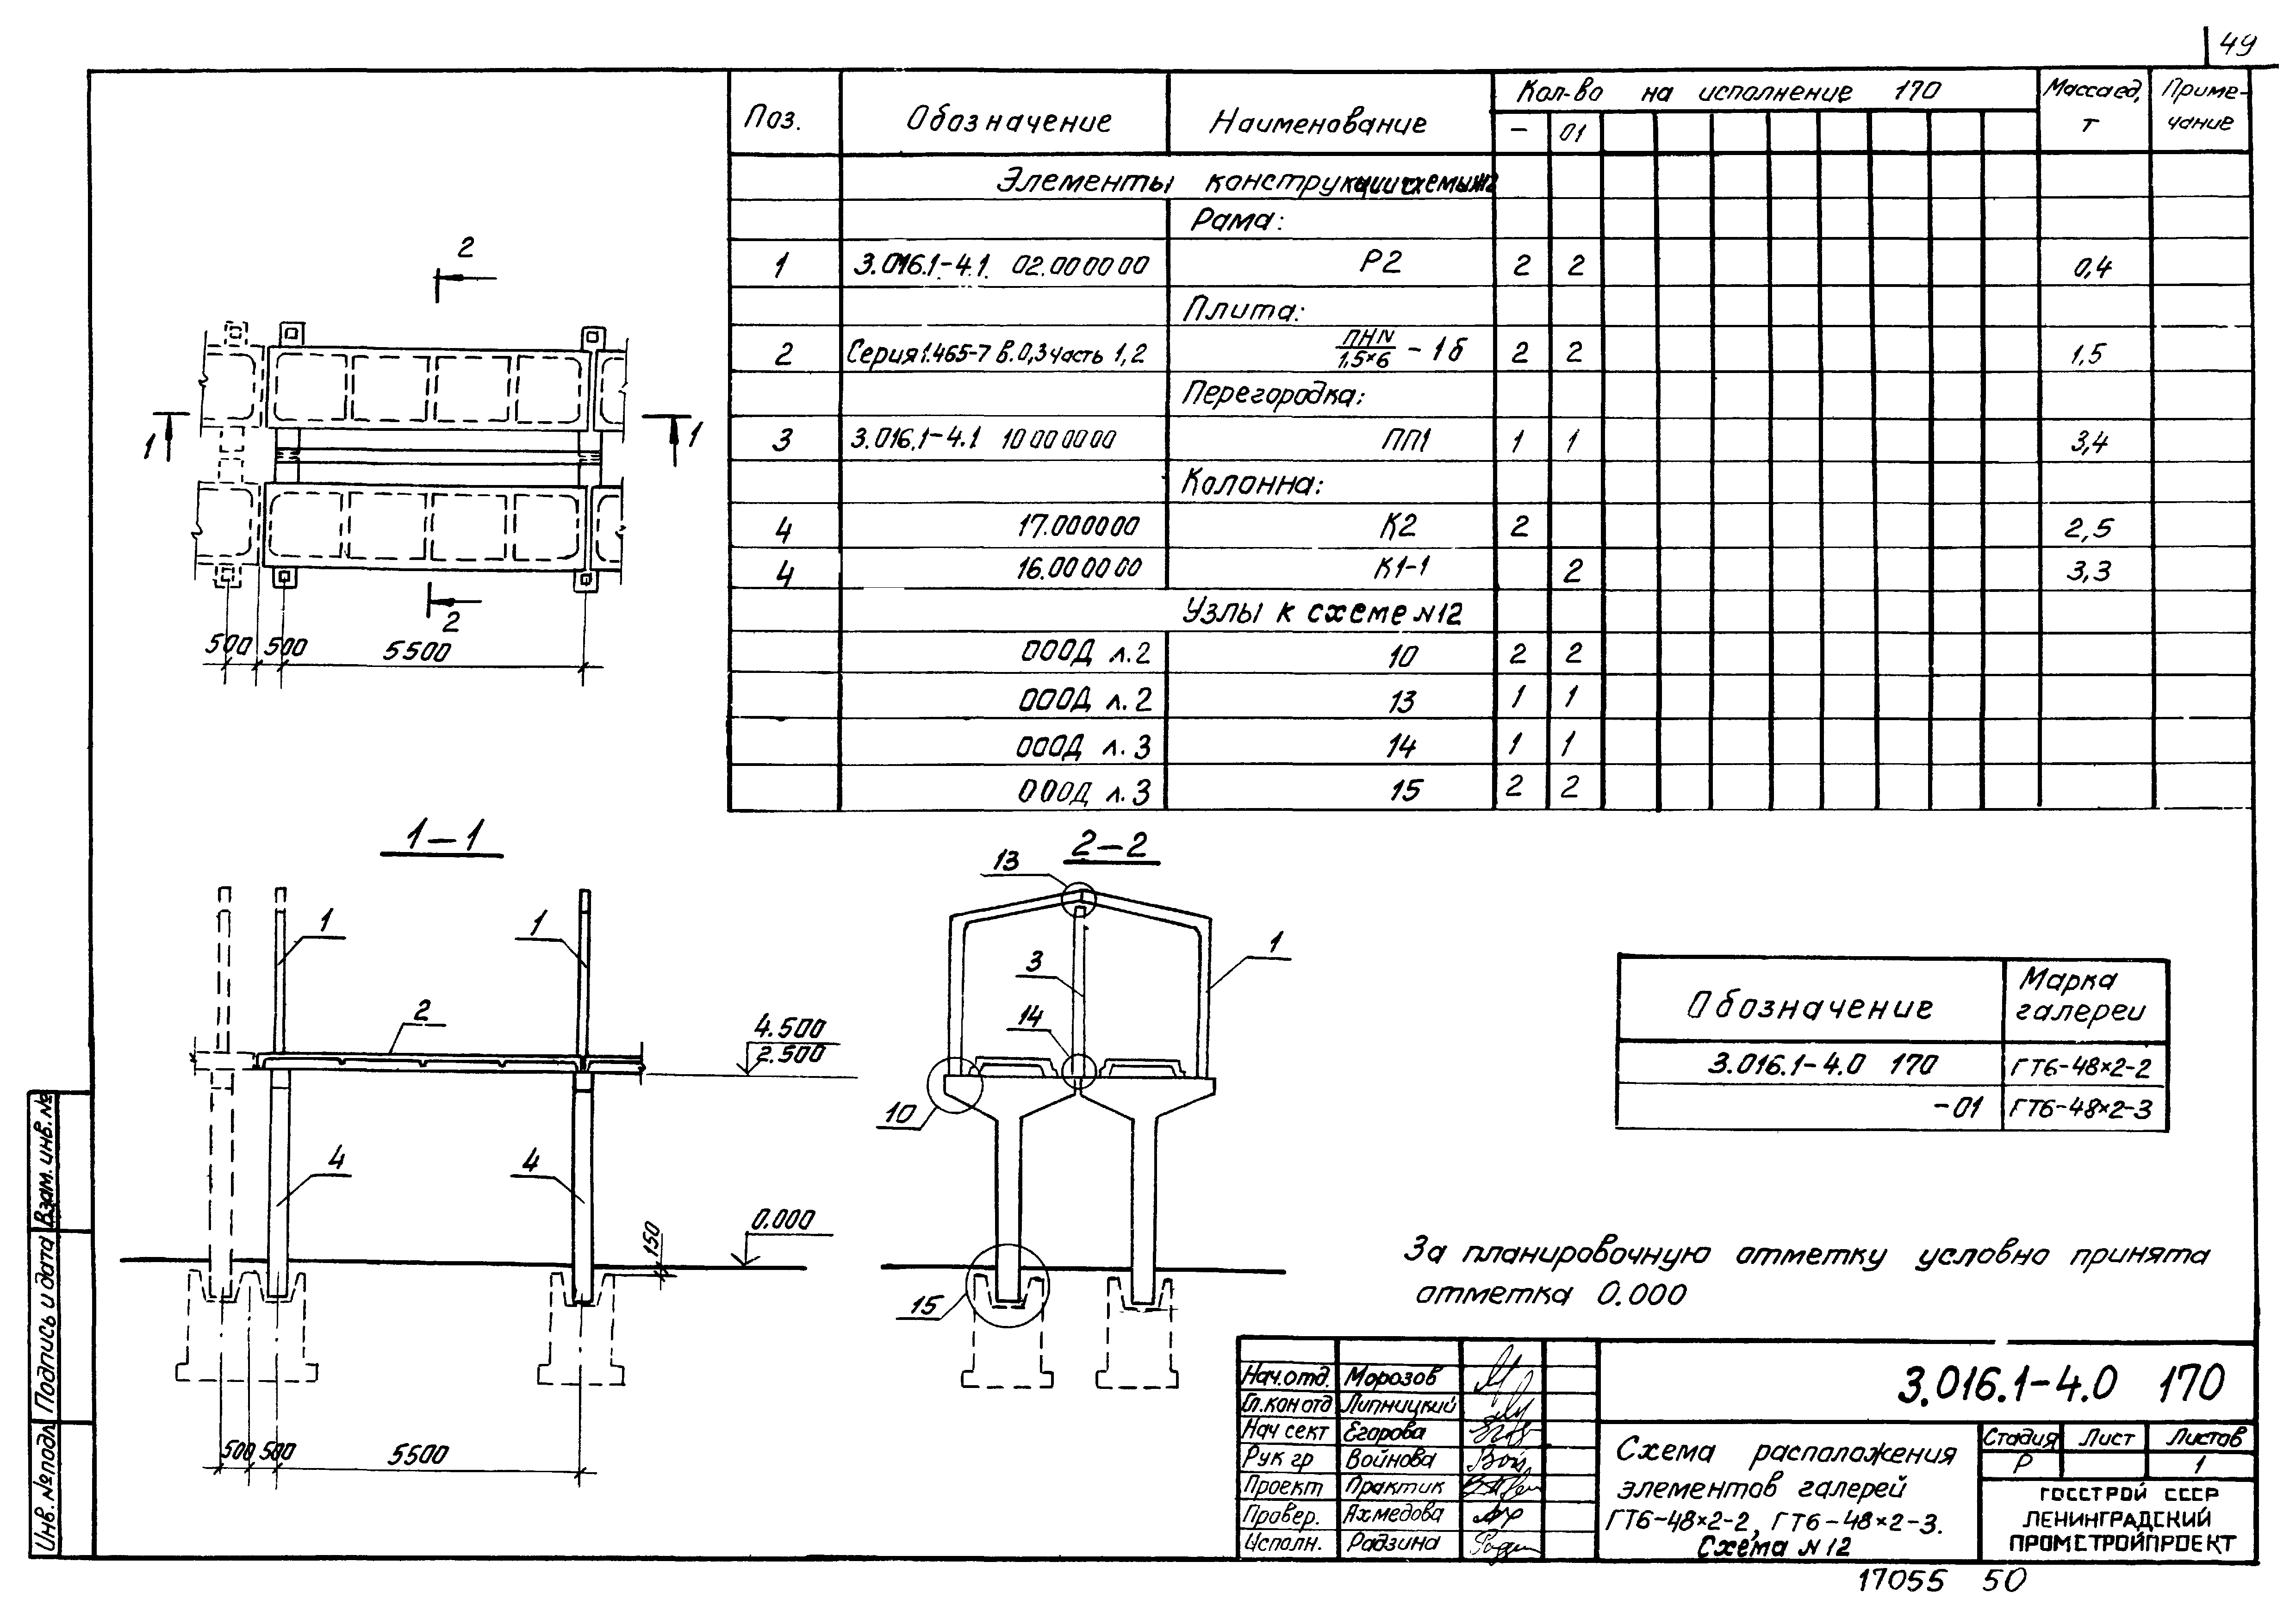 49
Поз. Обозначение Наименование Кол-во на исполнение 170 Масса ед, т Приме-чание
– 01
Элементы
Рама:
1 3.016.1-4.1 02.000000 Р2 2 2 0,4
Плита:
2 Серия 1.465-7 в.0,3 часть 1,2 ПНN/1,5×6 -1б 2 2 1,5
Перегородка:
3 3.016.1-4.1 10 000000 ПП1 1 1 3,4
Колонна:
4 17.000000 К2 2 2,5
4 16.000000 К1-1 2 3,3
Узлы к схеме N12
000Д л.2 10 2 2
000Д л.2 13 1 1
000Д л.3 14 1 1
000Д л.3 15 2 2
2
1 1
2
500 500 5500
1-1
1 1
2
4.500
2.500
4 4
0.000
150
500 500 5500
2-2
13
1
3
14
10
15
Обозначение Марка галереи
3.016.1-4.0 170 ГТ6-48×2-2
-01 ГТ6-48×2-3
За планировочную отметку условно принята
отметка 0.000
Нач.отд. Морозов
Гл.кон отд Липницкий
Нач сект Егорова
Рук гр Войнова
Проект Практик
Провер. Ахмедова
Исполн. Радзина
3.016.1-4.0 170
Схема расположения
элементов галерей
ГТ6-48×2-2, ГТ6-48×2-3.
Схема N12
Стадия Лист Листов
Р 1
ГОССТРОЙ СССР
ЛЕНИНГРАДСКИЙ
ПРОМСТРОЙПРОЕКТ
17055 50
Инв. №подл. Подпись и дата Взам. инв. №